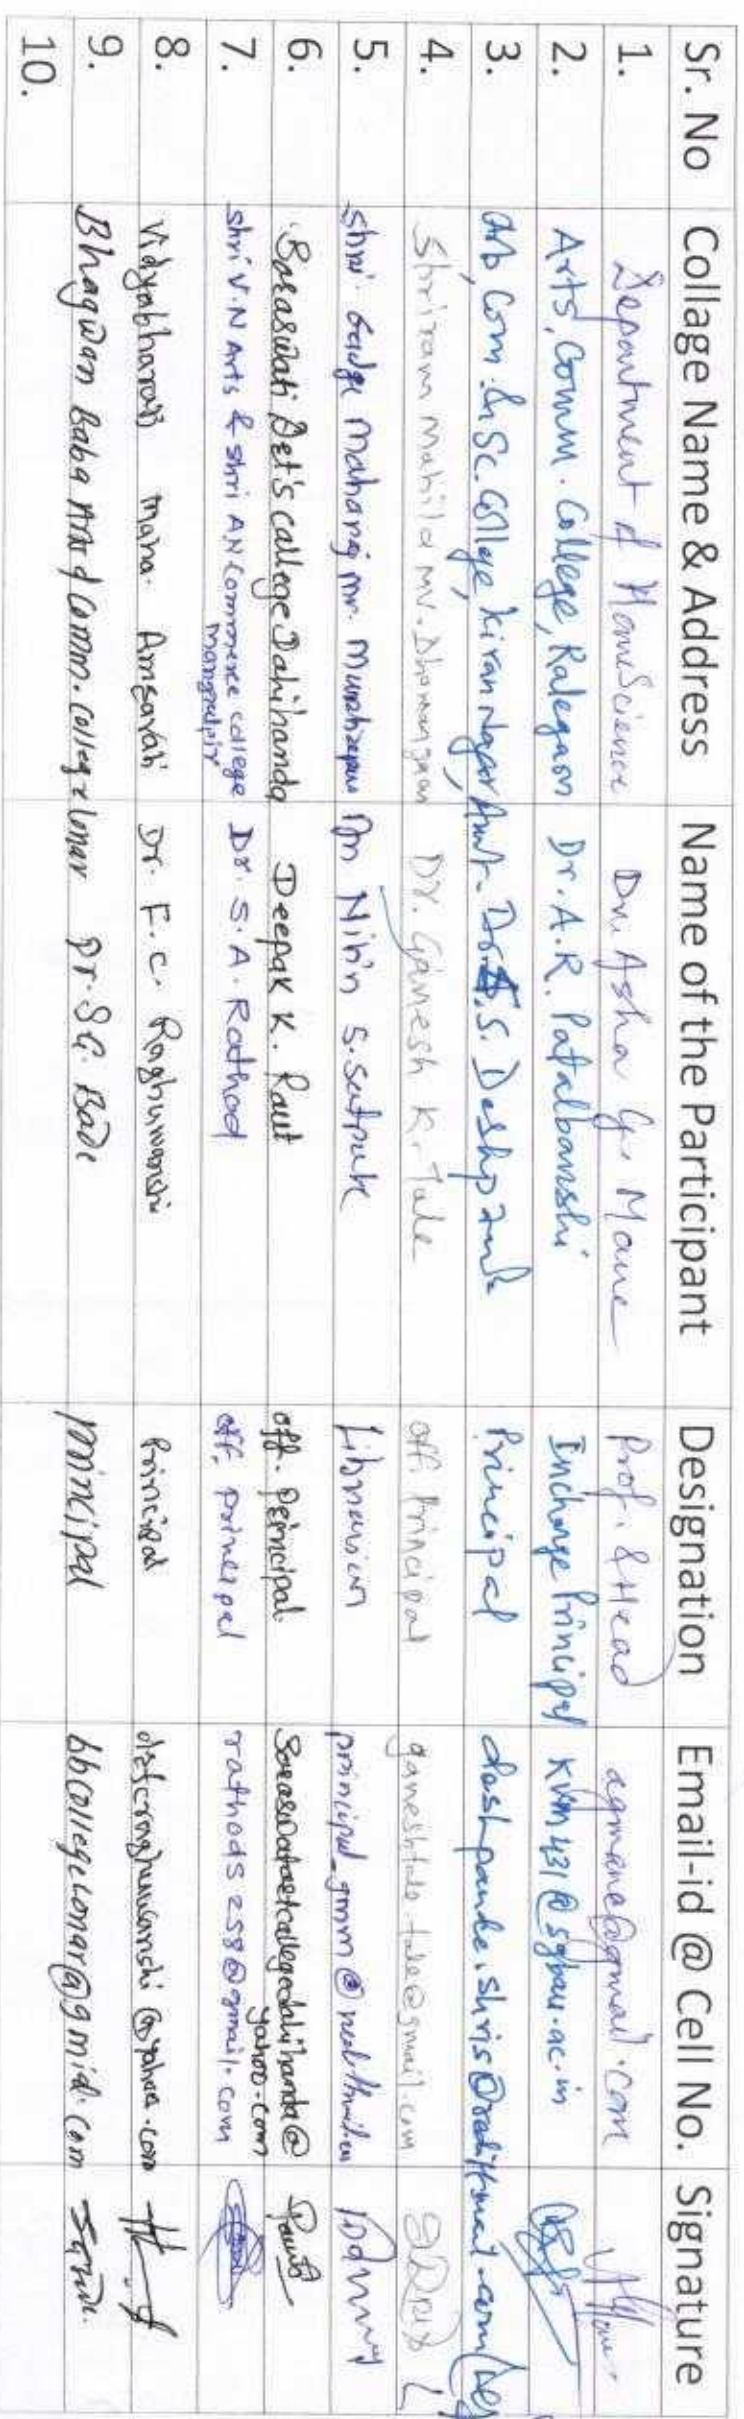 Sr. No Collage Name & Address Name of the Participant Designation Email-id @ Cell No. Signature
1. Department of HomeScience Dr. Asha G. Mane Prof. & Head agmane@gmail.com
2. Arts, Comm. College, Ralegaon Dr. A.R. Patalbanshi Incharge Principal kvm431@sgbau.ac.in
3. Arts, Com. & Sc. College, Kiran Nagar, Amt. S. Deshpande Principal deshpande.shris@rediffmail.com
4. Shriram Mahila mv. Dhamangaon Dr. Ganesh K. Tale off. Principal ganeshtale.tale@gmail.com
5. Shri Gadge Maharaj mv. Murtizapur Nitin S. Satpute Librarian principal_gmm@rediffmail.com
6. Saraswati Det's college Dahihanda Deepak K. Raut off. Principal
yahoo.com
7. shri V.N Arts & shri AN Commerce college Dr. S.A. Rathod off. principal rathods258@gmail.com
mangrulpir
8. Vidyabharati Maha. Amravati Dr. F.C. Raghuwanshi Principal drfcraghuwanshi@yahoo.com
9. Bhagwan Baba Arts & Comm. College lonar Dr. S.G. Bade principal bbcollegelonar@gmail.com
10.